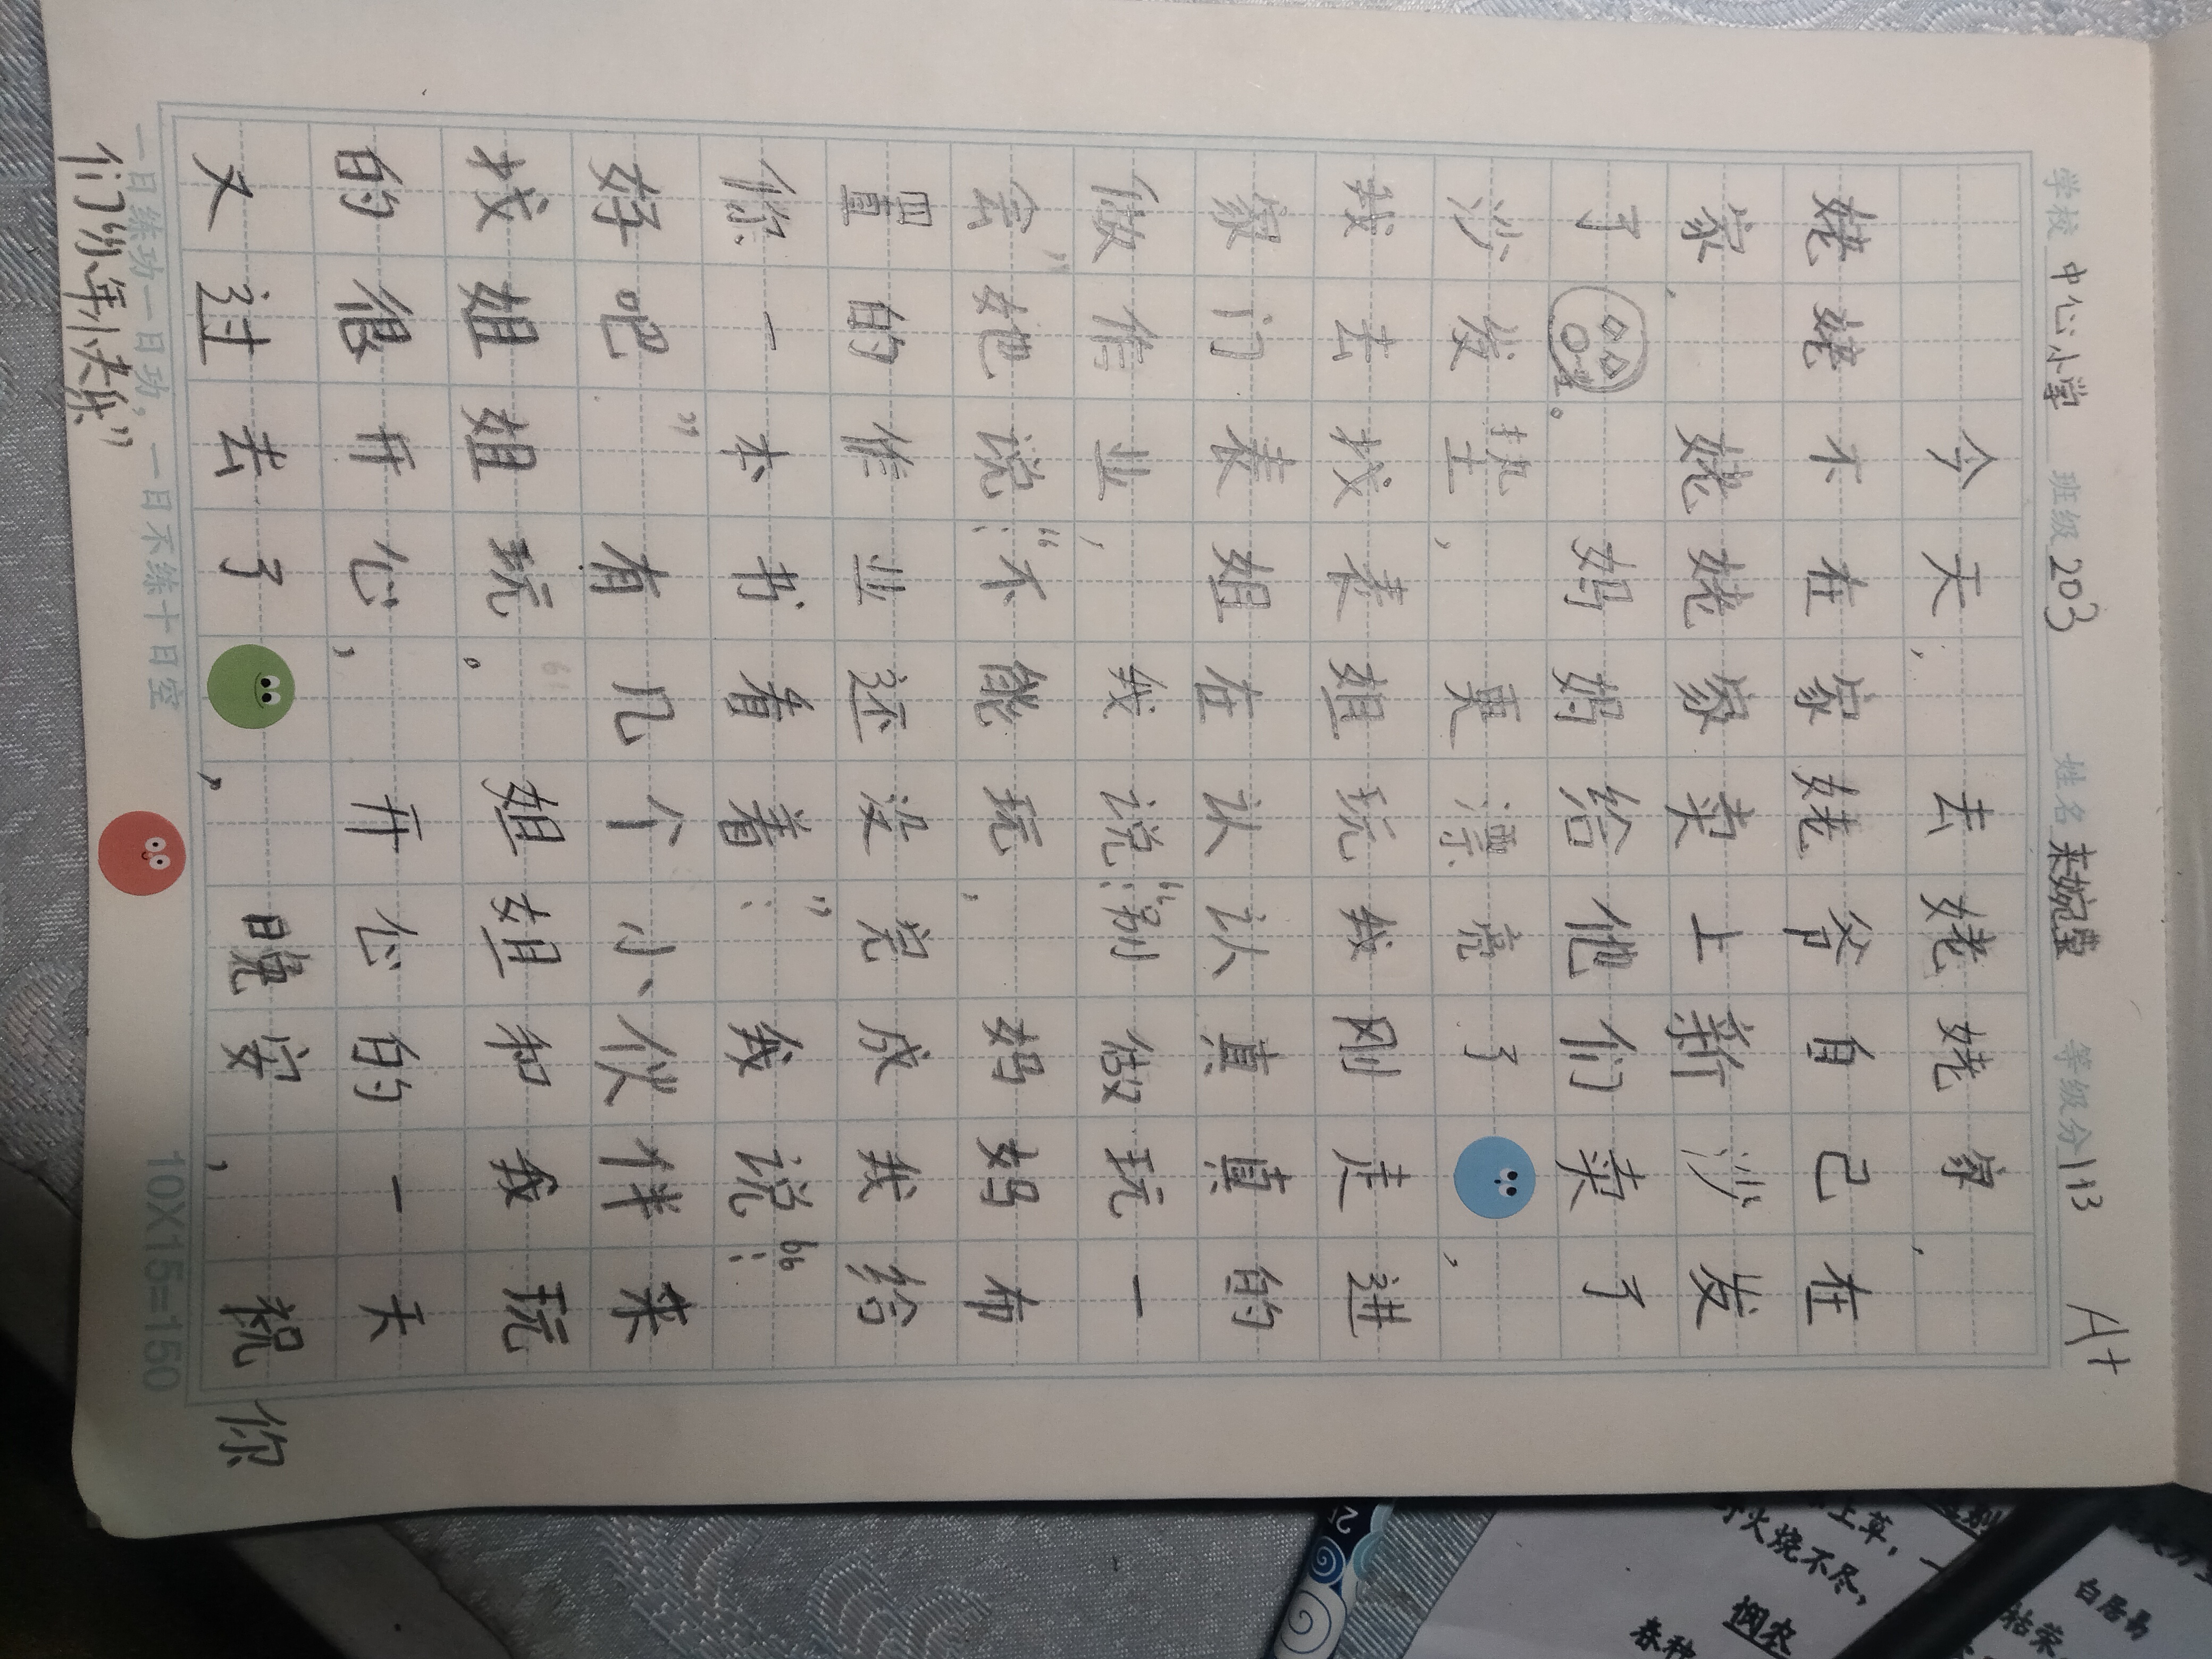 学校 中心小学 班级 203 姓名 来婉莹 等级分 113 A+
今天,去姥姥家,
姥姥不在家姥爷自己在
家,姥姥家卖上新沙发
了。妈妈给他们卖了
沙发垫,更漂亮了,
我去找表姐玩我刚走进
家门表姐在认认真真的
做作业,我说:“别做玩一
会”她说:“不能玩,妈妈布
置的作业还没完成我给
你一本书看着:”我说:“
好吧”有几个小伙伴来
找姐姐玩。姐姐和我玩
的很开心,开心的一天
又过去了,晚安,祝你
们年快乐”
一日练功一日功,一日不练十日空 10X15=150
白居易
上草,一
火烧不尽,
悯农
春种
枯荣